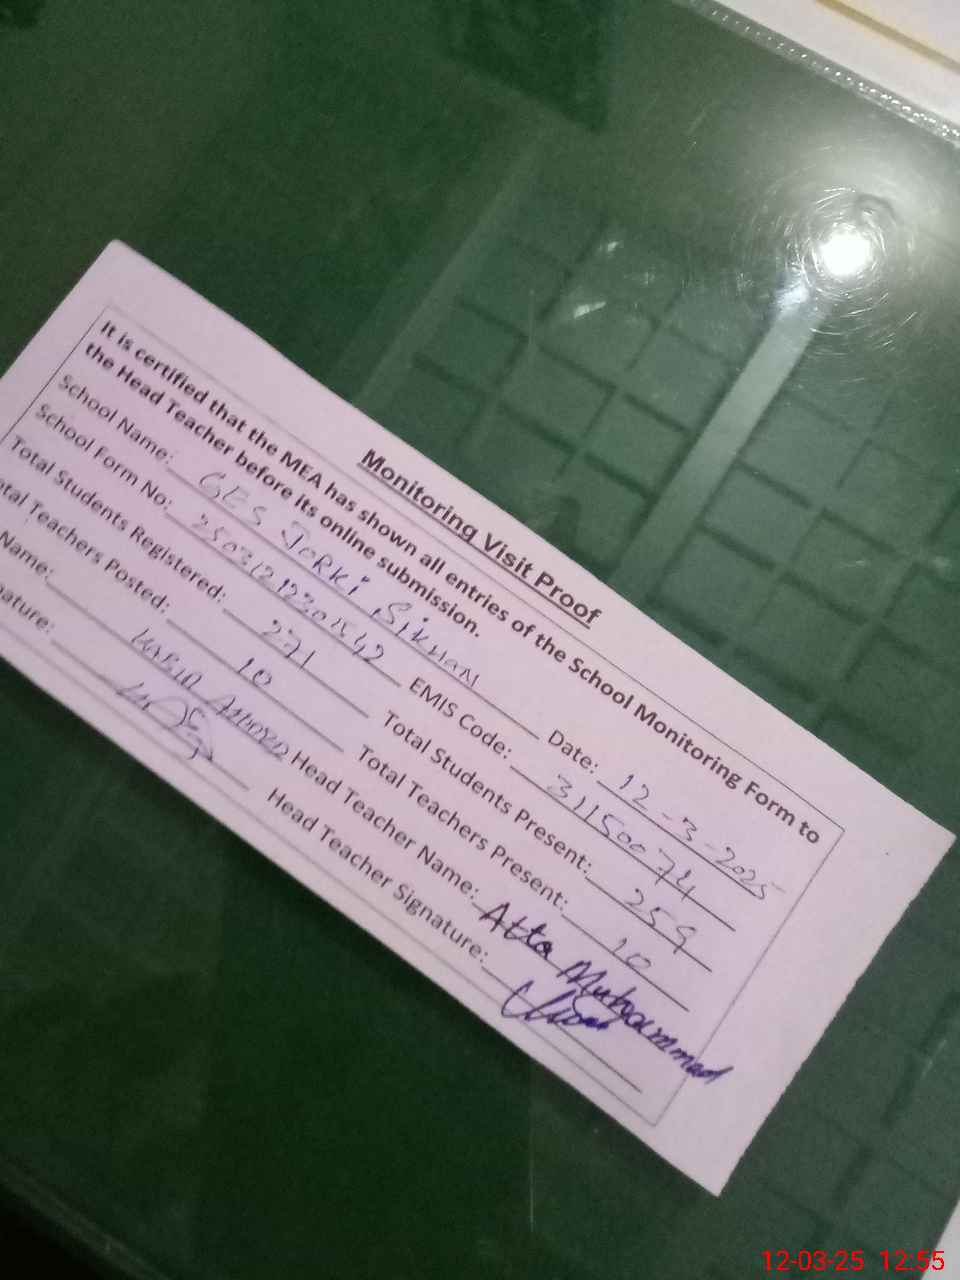 Monitoring Visit Proof
It is certified that the MEA has shown all entries of the School Monitoring Form to
the Head Teacher before its online submission.
School Name: GES JORKi SiKHAN Date: 12-3-2025
School Form No: EMIS Code: 31150074
Total Students Registered: 271 Total Students Present: 259
otal Teachers Posted: 10 Total Teachers Present: 10
Name: Head Teacher Name: Atta Muhammad
nature: Head Teacher Signature:
12-03-25 12:55